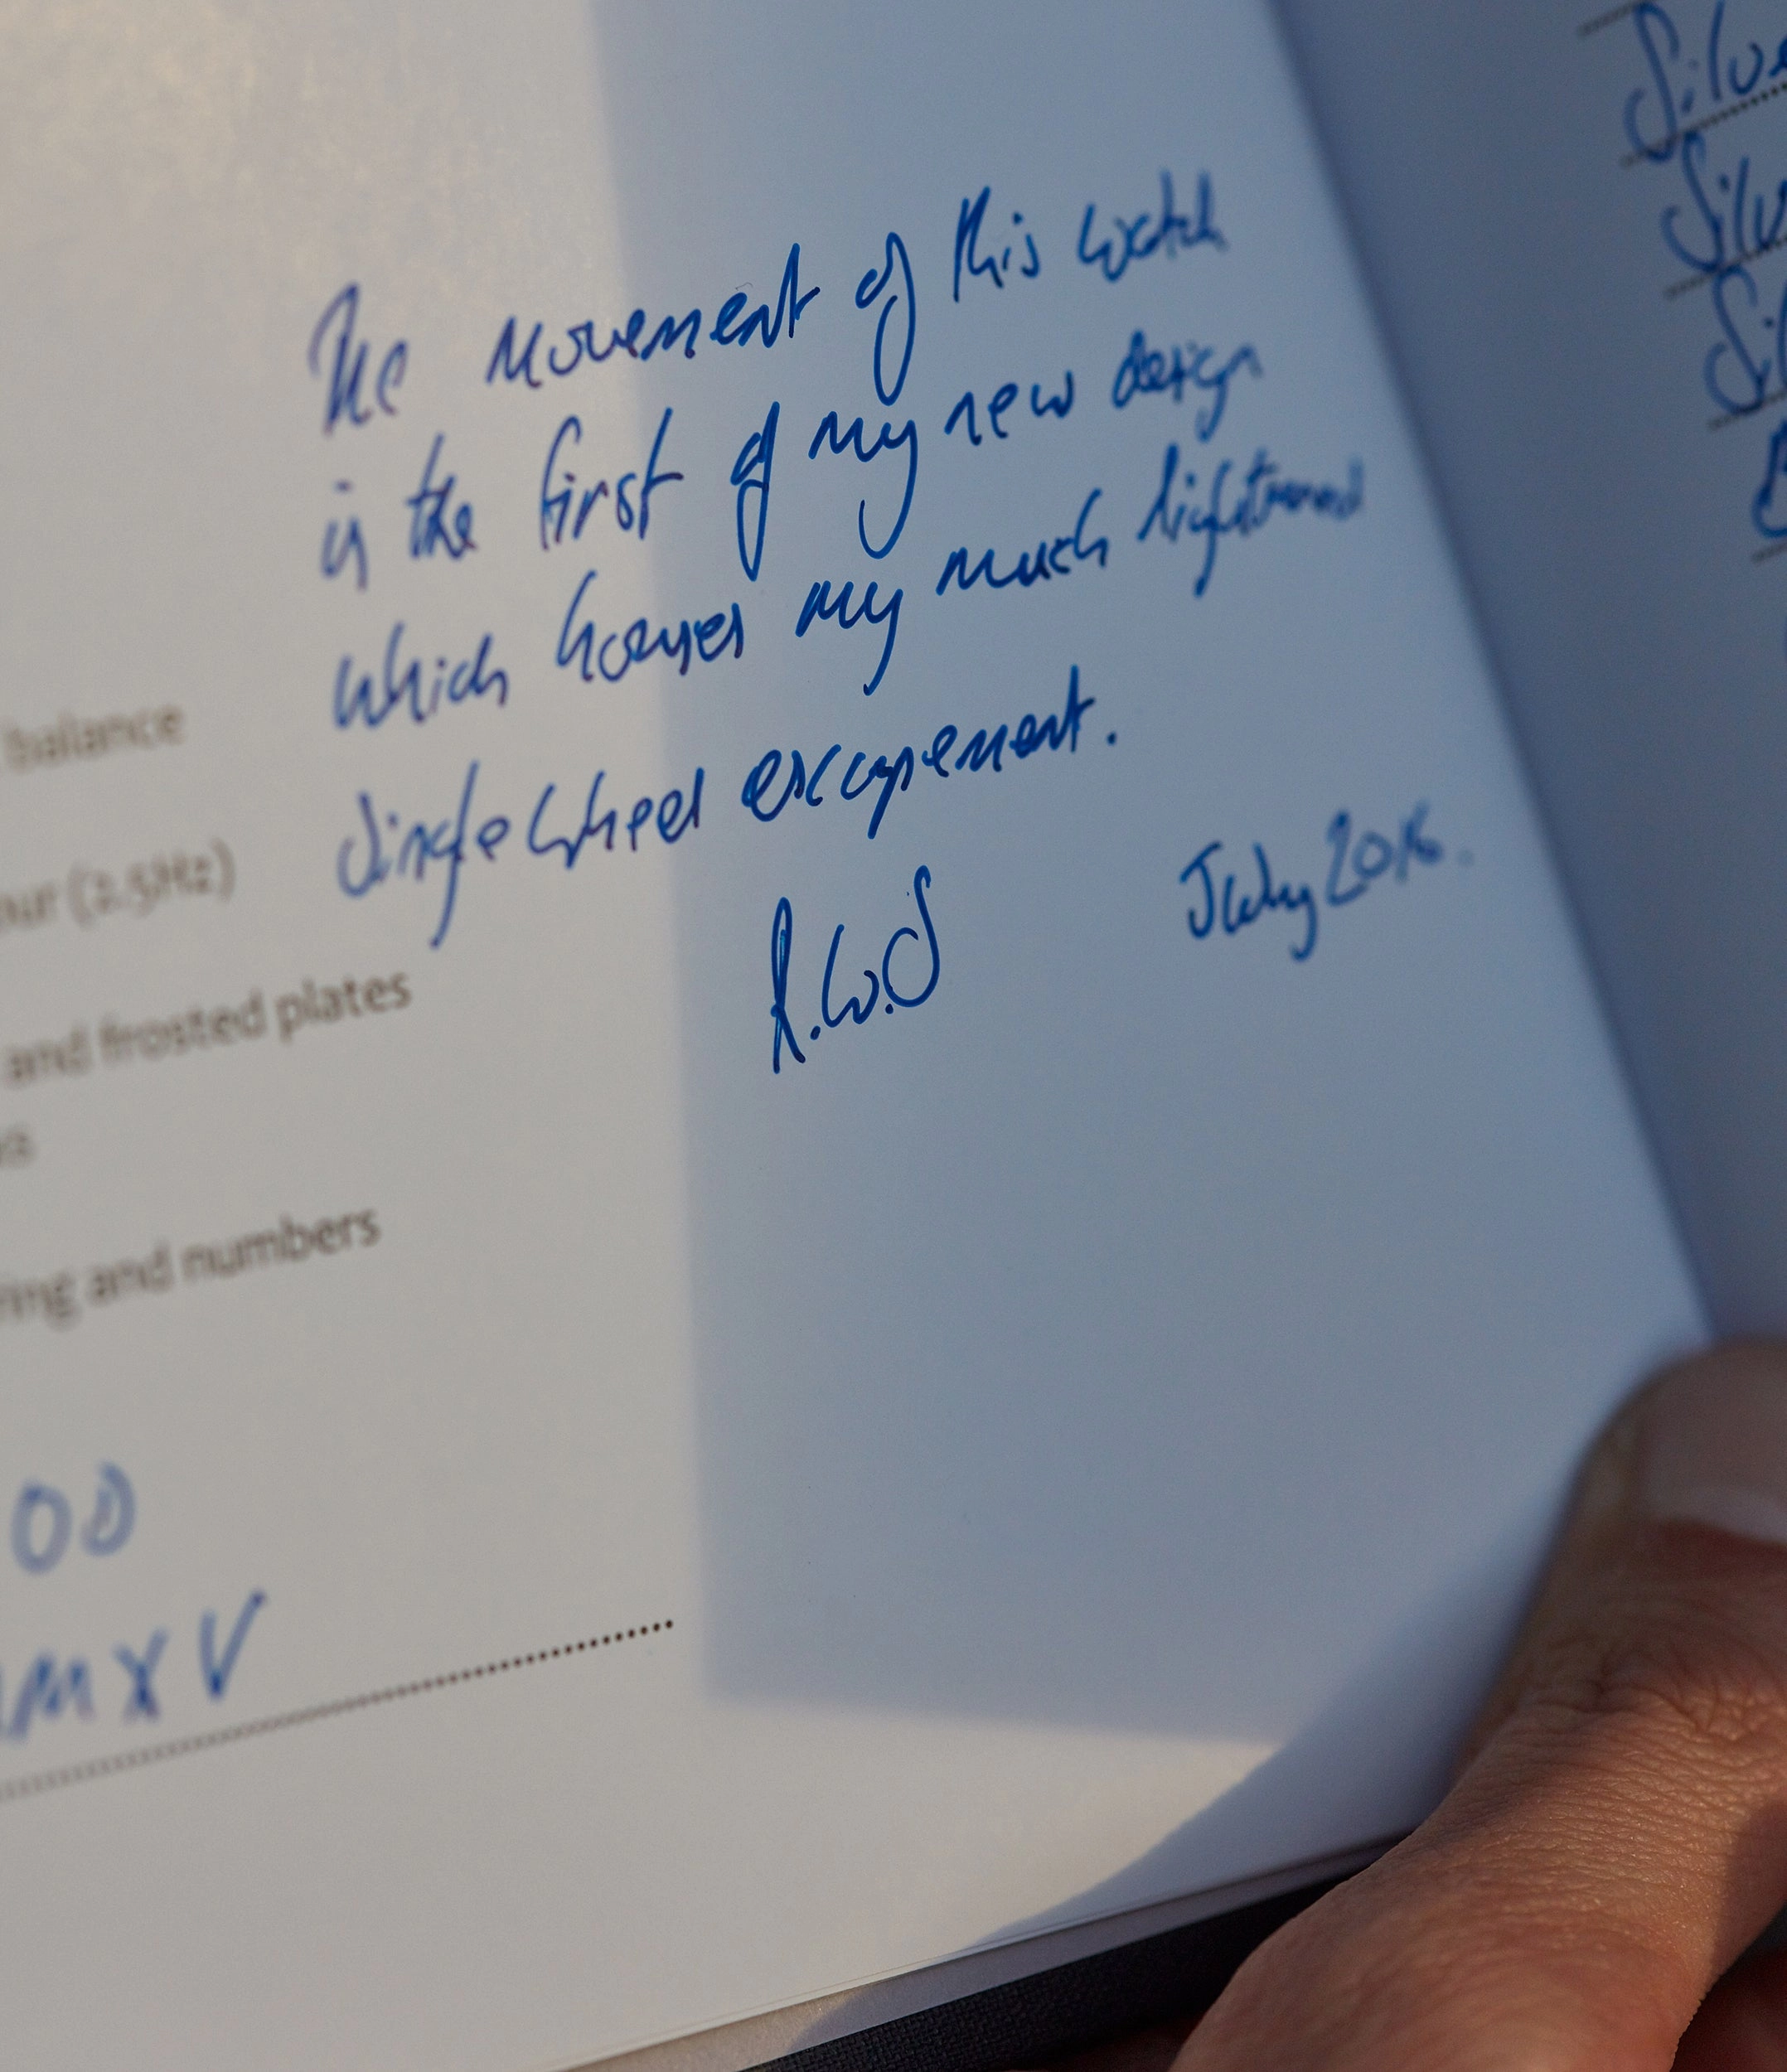 The movement of this watch
is the first of my new design
which houses my much lightened
single wheel escapement.
R.W.S July 2016.
balance
(2.5Hz)
and frosted plates
and numbers
OD
MXV